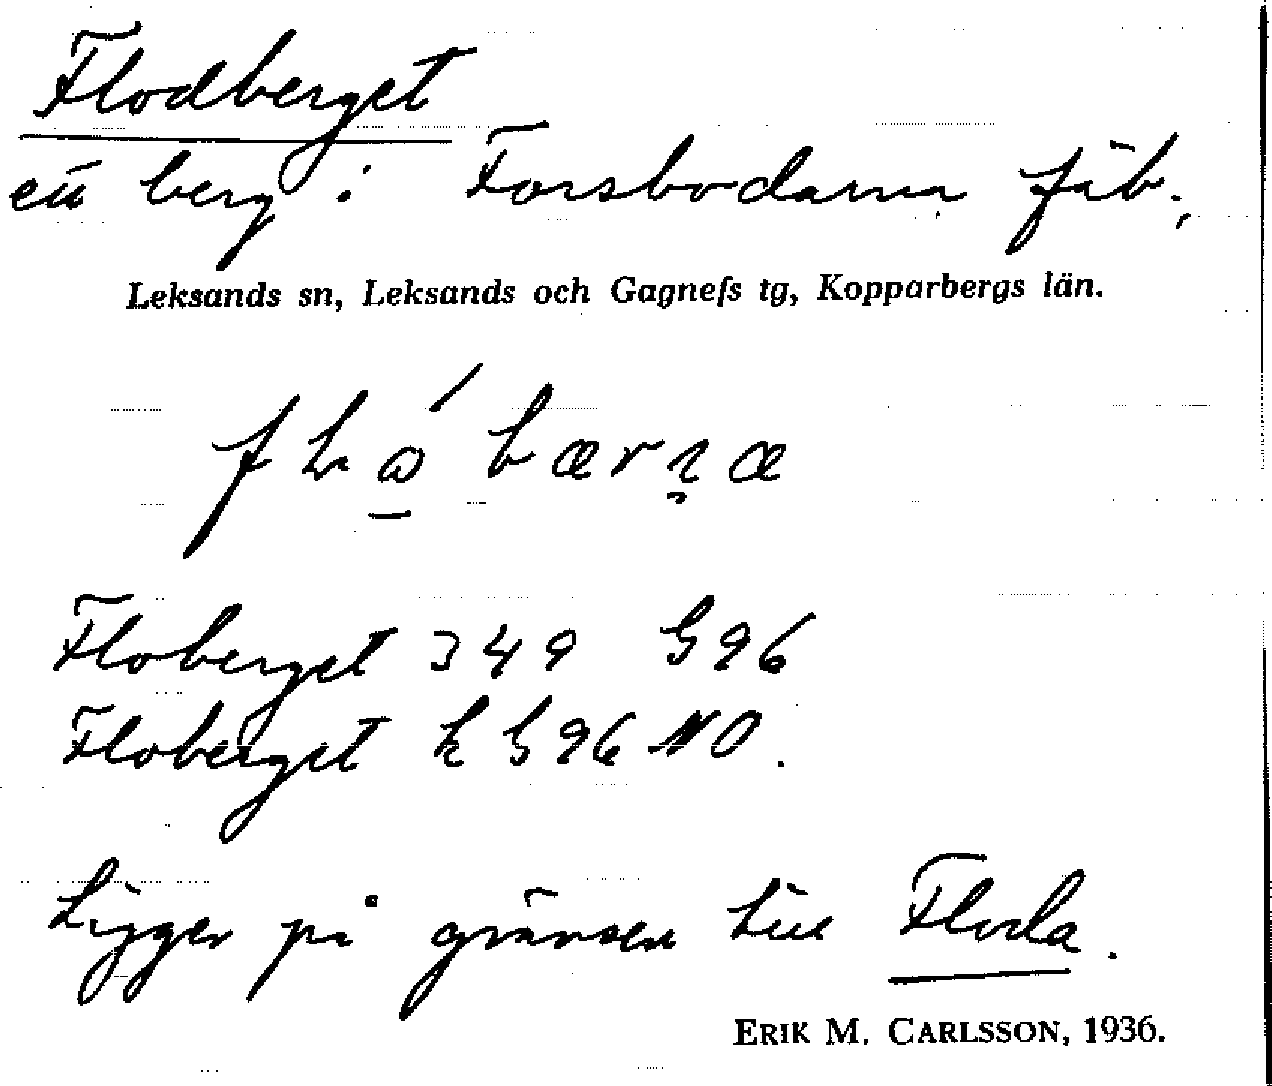 Flodberget
ett berg i Forsbodarna fäb.,
Leksands sn, Leksands och Gagnefs tg, Kopparbergs län.
Floberget J49 G96
Floberget k G96 NO.
Ligger på gränsen till Floda.
ERIK M. CARLSSON, 1936.